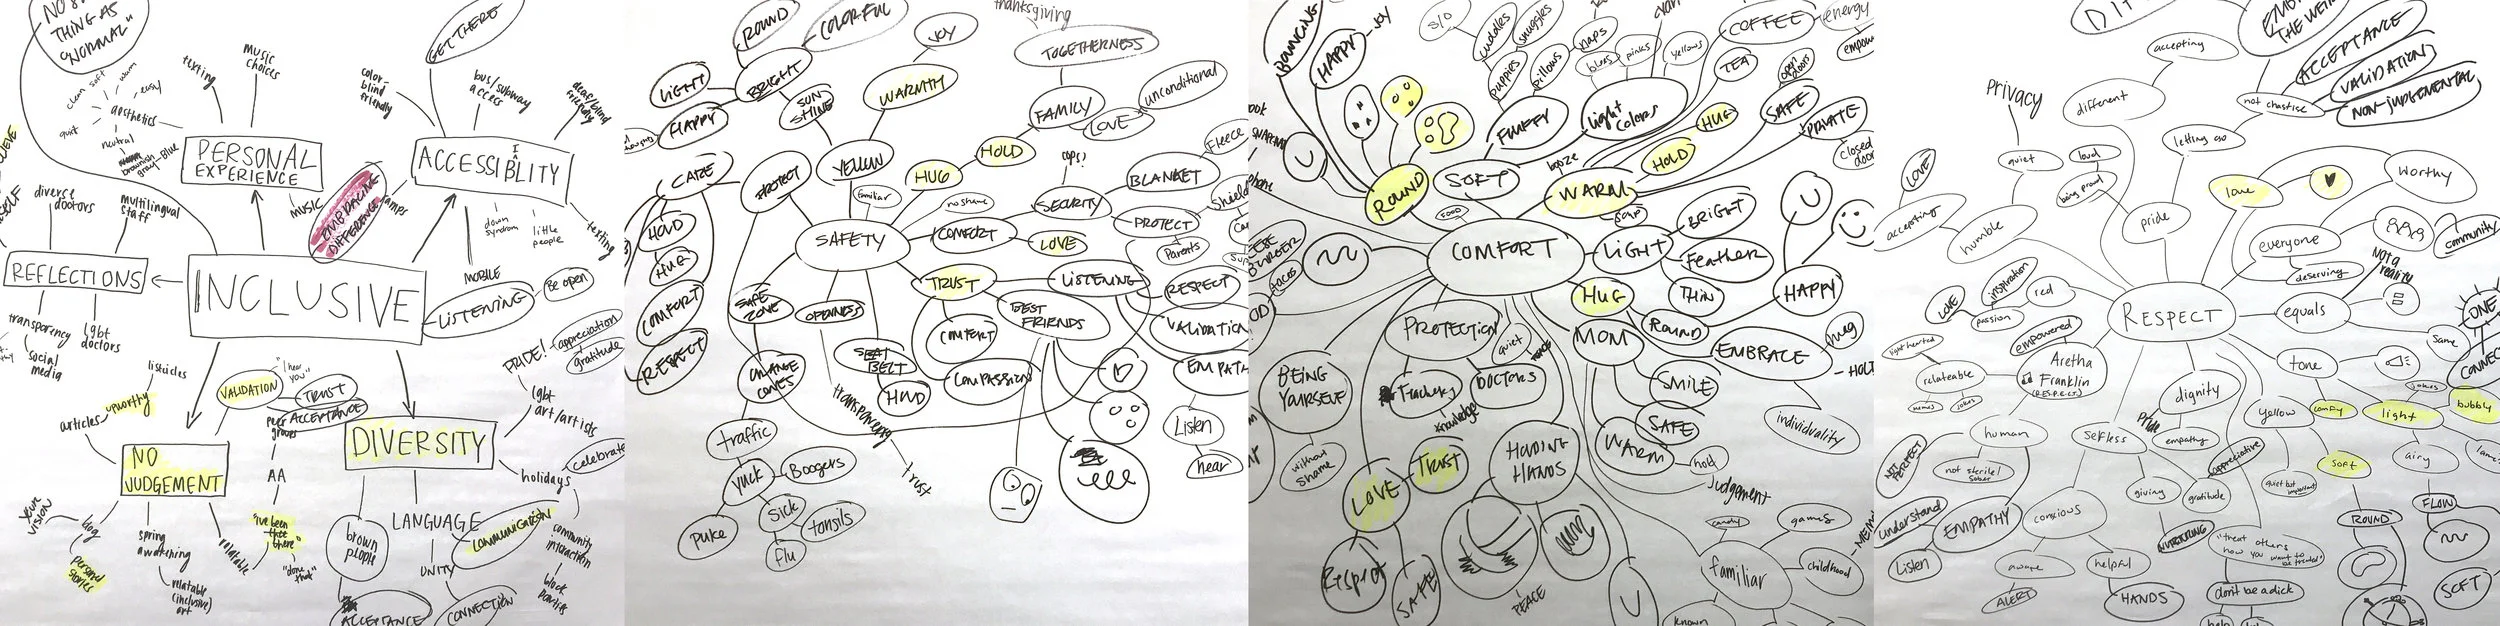 THING AS
"NORMAL"
GET THERE
texting
music
choices
color-
blind
friendly
bus/subway
access
deaf/blind
friendly
clean
soft
warm
easy
aesthetics
quit
neutral
gray-Blue
PERSONAL
EXPERIENCE
ACCESSIBLITY
I
music
EMBRACING
DIFFERENCE
amps
diverse
doctors
multilingual
staff
down
syndrom
little
people
texting
REFLECTIONS
INCLUSIVE
MOBILE
LISTENING
Be open
transparency
social
media
lgbt
doctors
listicles
upworthy
articles
VALIDATION
"I hear
you"
TRUST
ACCEPTANCE
peer
groups
AA
PRIDE!
appreciation
gratitude
lgbt
art/artists
DIVERSITY
celebrate
holidays
NO
JUDGEMENT
your
vision
blog
personal
stories
spring
awakening
relatable
(inclusive)
art
relatable
"ive been
there"
"done
that"
brown
people
ACCEPTANCE
LANGUAGE
COMMUNICATION
UNITY
CONNECTION
community
interaction
block
parties
ROUND
COLORFUL
LIGHT
BRIGHT
HAPPY
SUN
SHINE
JOY
WARMTH
YELLOW
thanksgiving
TOGETHERNESS
FAMILY
LOVE
unconditional
HOLD
HUG
CARE
PROTECT
HOLD
HUG
COMFORT
RESPECT
familiar
no shame
SAFETY
COMFORT
LOVE
cops?
SECURITY
BLANKET
Fleece
PROTECT
Shield
Parents
TRUST
LISTENING
RESPECT
VALIDATION
EMPATH
Listen
hear
BEST
FRIENDS
COMFORT
COMPASSION
SAFE
ZONE
OPENNESS
SEAT
BELT
HOLD
transparency
trust
CHANGE
COMES
traffic
Yuck
Boogers
Puke
Sick
tonsils
flu
BOUNCING
HAPPY
JOY
ROUND
S/O
cuddles
snuggles
puppies
pillows
naps
FLUFFY
SOFT
blues
pinks
yellows
light
colors
COFFEE
energy
empow
TEA
HUG
HOLD
booze
WARM
soap
open
doors
SAFE
PRIVATE
closed
door
phone
FOOD
COMFORT
LIGHT
BRIGHT
Feather
THIN
HUG
ROUND
HAPPY
EMBRACE
hug
individuality
MOM
SMILE
SAFE
WARM
hold
Judgement
tacos
PROTECTION
Teachers
knowledge
DOCTORS
quiet
BEING
YOURSELF
without
shame
LOVE
TRUST
Respect
SAFE
HOLDING
HANDS
PEACE
familiar
candy
games
childhood
known
accepting
EMB
THE WEIRD
ACCEPTANCE
VALIDATION
NON-JUDGEMENTAL
not chastise
different
letting go
Privacy
quiet
LOVE
accepting
humble
loud
being proud
pride
love
worthy
everyone
deserving
community
Not a
reality
RESPECT
equals
Same
ONE
CONNEC
inspiration
LOVE
passion
red
empowered
Aretha
Franklin
(R.E.S.P.E.C.T.)
light hearted
relateable
memes
jokes
tone
jokes
comfy
light
bubbly
dignity
Pride
empathy
yellow
appreciative
quiet but
important
soft
airy
human
NOT
PERFECT
not sterile/
sober
understand
EMPATHY
Listen
selfless
giving
gratitude
NURTURING
conscious
aware
ALERT
helpful
HANDS
"treat others
how you want to
be treated"
don't be a dick
help
ROUND
FLOW
SOFT